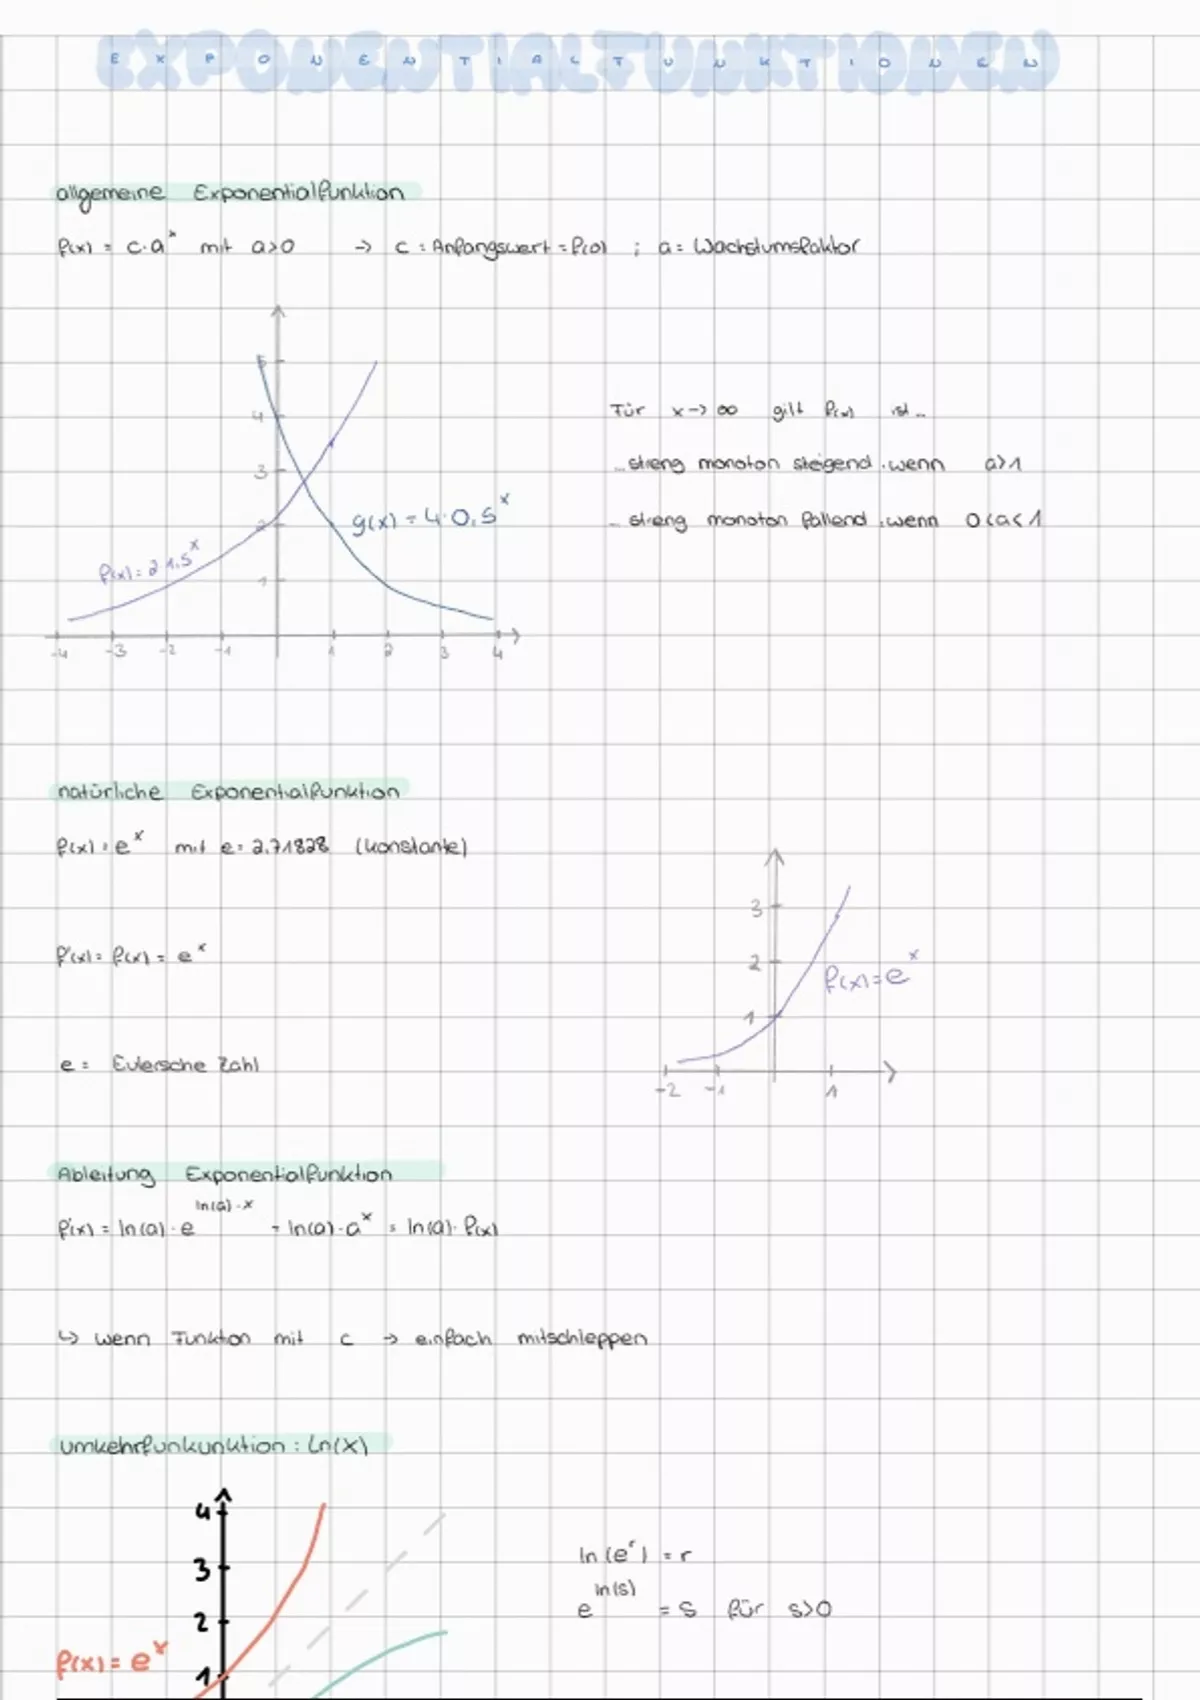 EXPONENTIALFUNKTIONEN
allgemeine Exponentialfunktion
f(x) = c·a^x mit a>0 → c = Anfangswert = f(0) ; a = Wachstumsfaktor
5
4
3
2
1
g(x) = 4·0,5^x
f(x) = 2·1,5^x
-4 -3 -2 -1 1 2 3 4
Für x→∞ gilt f(x) ist...
...streng monoton steigend, wenn a>1
...streng monoton fallend, wenn 0<a<1
natürliche Exponentialfunktion
f(x) = e^x mit e = 2,71828 (konstante)
f'(x) = f(x) = e^x
e = Eulersche Zahl
3
2
1
f(x) = e^x
-2 -1 1
Ableitung Exponentialfunktion
f'(x) = ln(a)·e^ln(a)·x = ln(a)·a^x = ln(a)·f(x)
↳ wenn Funktion mit c → einfach mitschleppen
Umkehrfunkunktion: ln(x)
4
3
2
1
f(x) = e^x
ln(e^r) = r
e^ln(s) = s für s>0